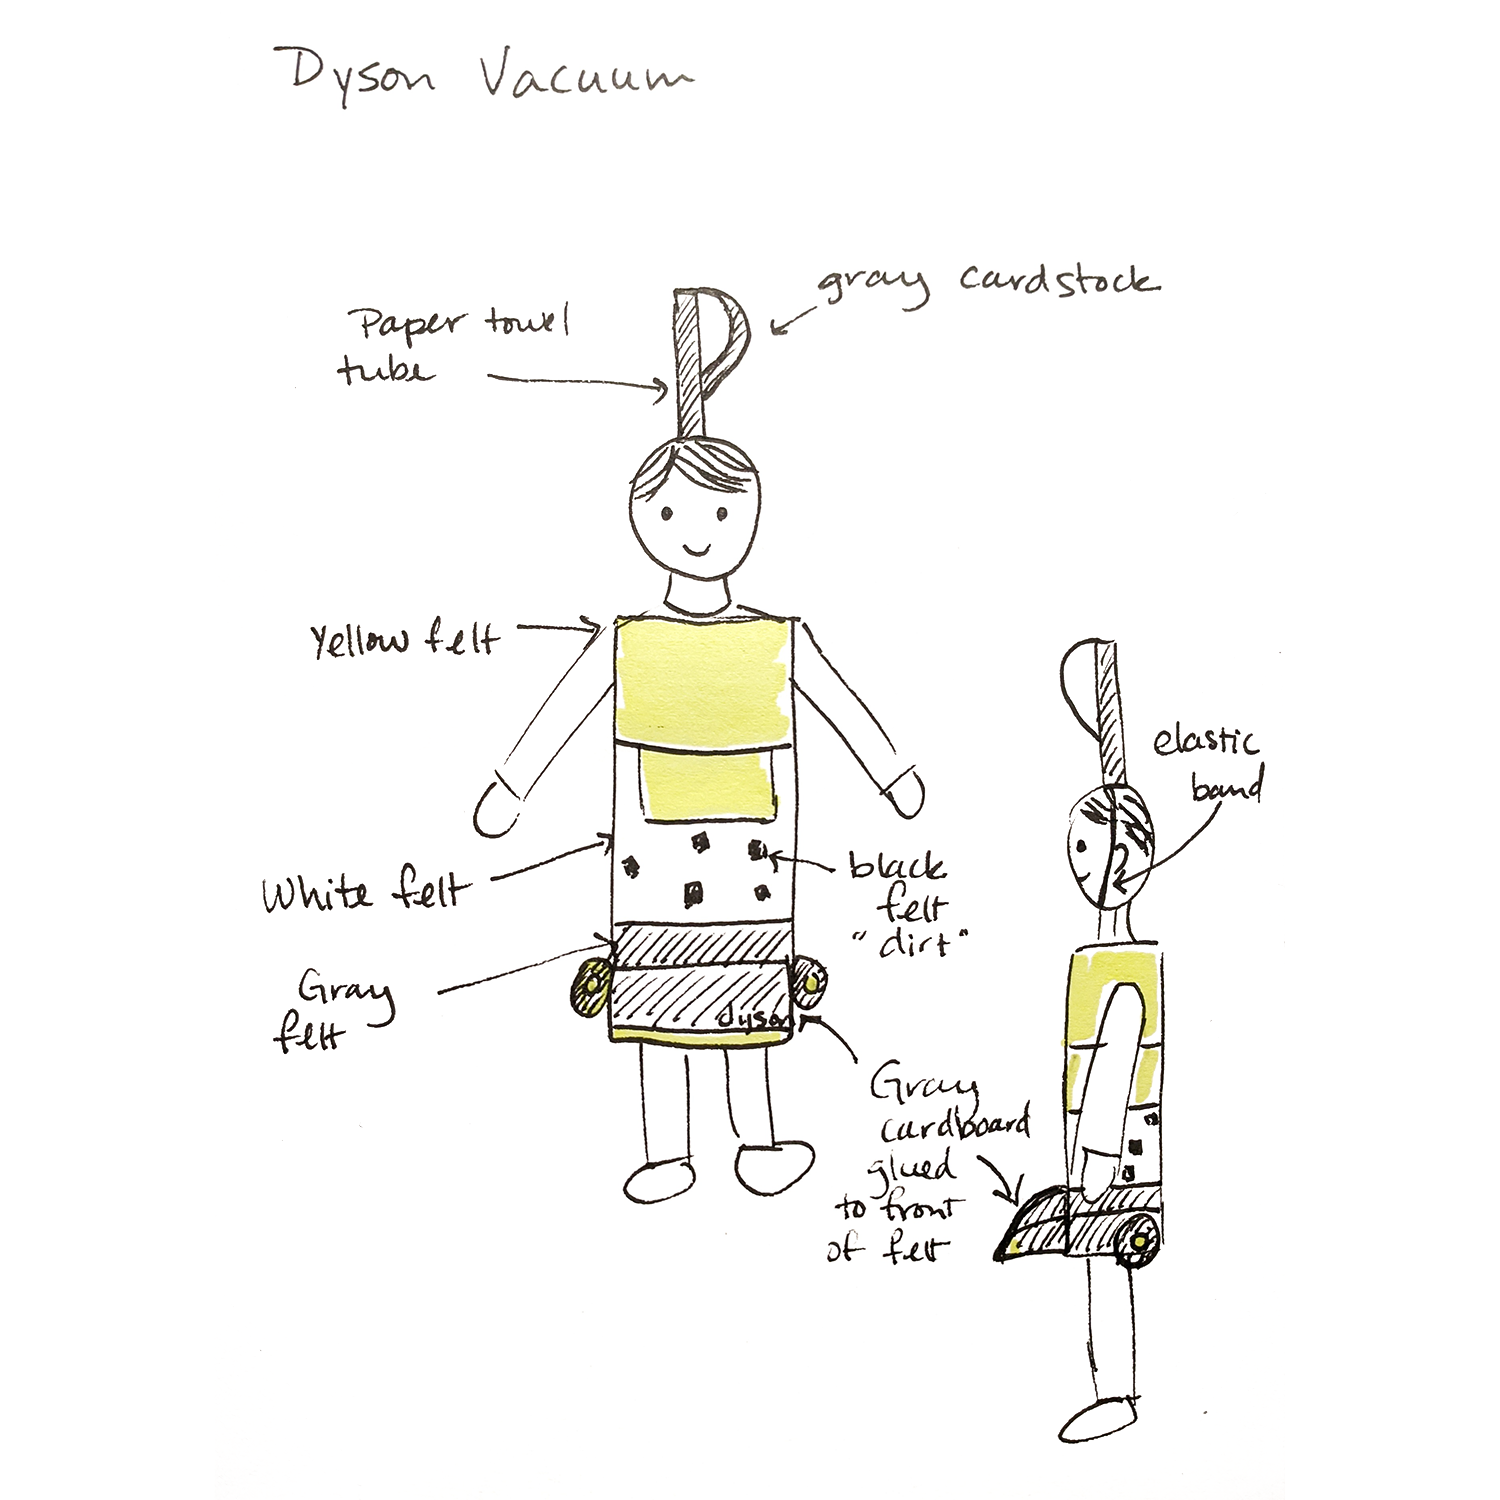 Dyson Vacuum
gray cardstock
Paper towel
tube
Yellow felt
elastic
band
White felt
black
felt
"dirt"
Gray
felt
dyson
Gray
cardboard
glued
to front
of felt